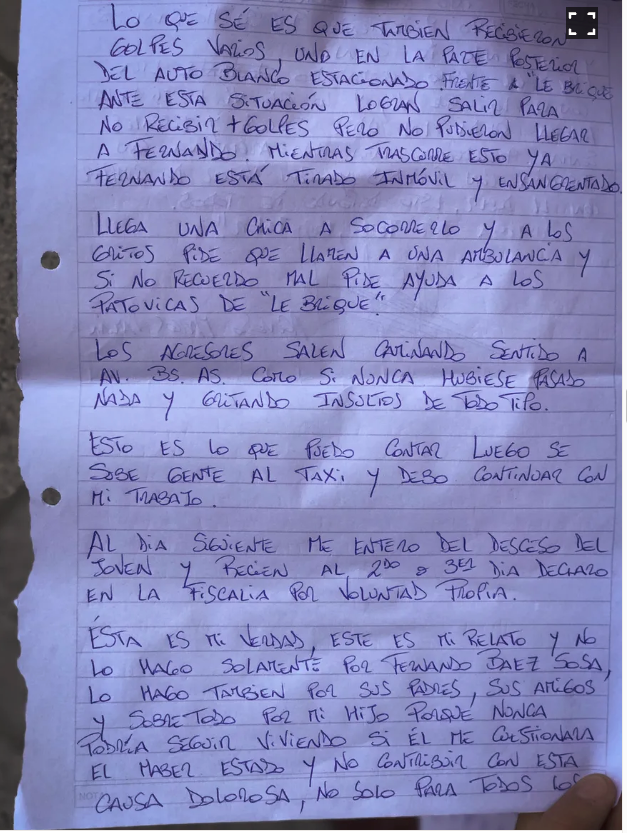 LO QUE SÉ ES QUE TAMBIEN RECIBIERON
GOLPES VARIOS, UNO EN LA PARTE POSTERIOR
DEL AUTO BLANCO ESTACIONADO FRENTE A "LE BRIQUE
ANTE ESTA SITUACIÓN LOGRAN SALIR PARA
NO RECIBIR + GOLPES PERO NO PUDIERON LLEGAR
A FERNANDO. MIENTRAS TRASCORRE ESTO YA
FERNANDO ESTÁ TIRADO INMÓVIL Y ENSANGRENTADO.
LLEGA UNA CHICA A SOCORRERLO Y A LOS
GRITOS PIDE QUE LLAMEN A UNA AMBULANCIA Y
SI NO RECUERDO MAL PIDE AYUDA A LOS
PATOVICAS DE "LE BRIQUE".
LOS AGRESORES SALEN CAMINANDO SENTIDO A
AV. BS. AS. COMO SI NUNCA HUBIESE PASADO
NADA Y GRITANDO INSULTOS DE TODO TIPO.
ESTO ES LO QUE PUEDO CONTAR LUEGO SE
SUBE GENTE AL TAXI Y DEBO CONTINUAR CON
MI TRABAJO.
AL DIA SIGUIENTE ME ENTERO DEL DESCESO DEL
JOVEN Y RECIEN AL 2DO o 3ER DIA DECLARO
EN LA FISCALIA POR VOLUNTAD PROPIA.
ÉSTA ES MI VERDAD, ESTE ES MI RELATO Y NO
LO HAGO SOLAMENTE POR FERNANDO BAEZ SOSA,
LO HAGO TAMBIEN POR SUS PADRES, SUS AMIGOS
Y SOBRE TODO POR MI HIJO PORQUE NUNCA
PODRIA SEGUIR VIVIENDO SI ÉL ME CUESTIONARA
EL HABER ESTADO Y NO CONTRIBUIR CON ESTA
CAUSA DOLOROSA, NO SOLO PARA TODOS LOS